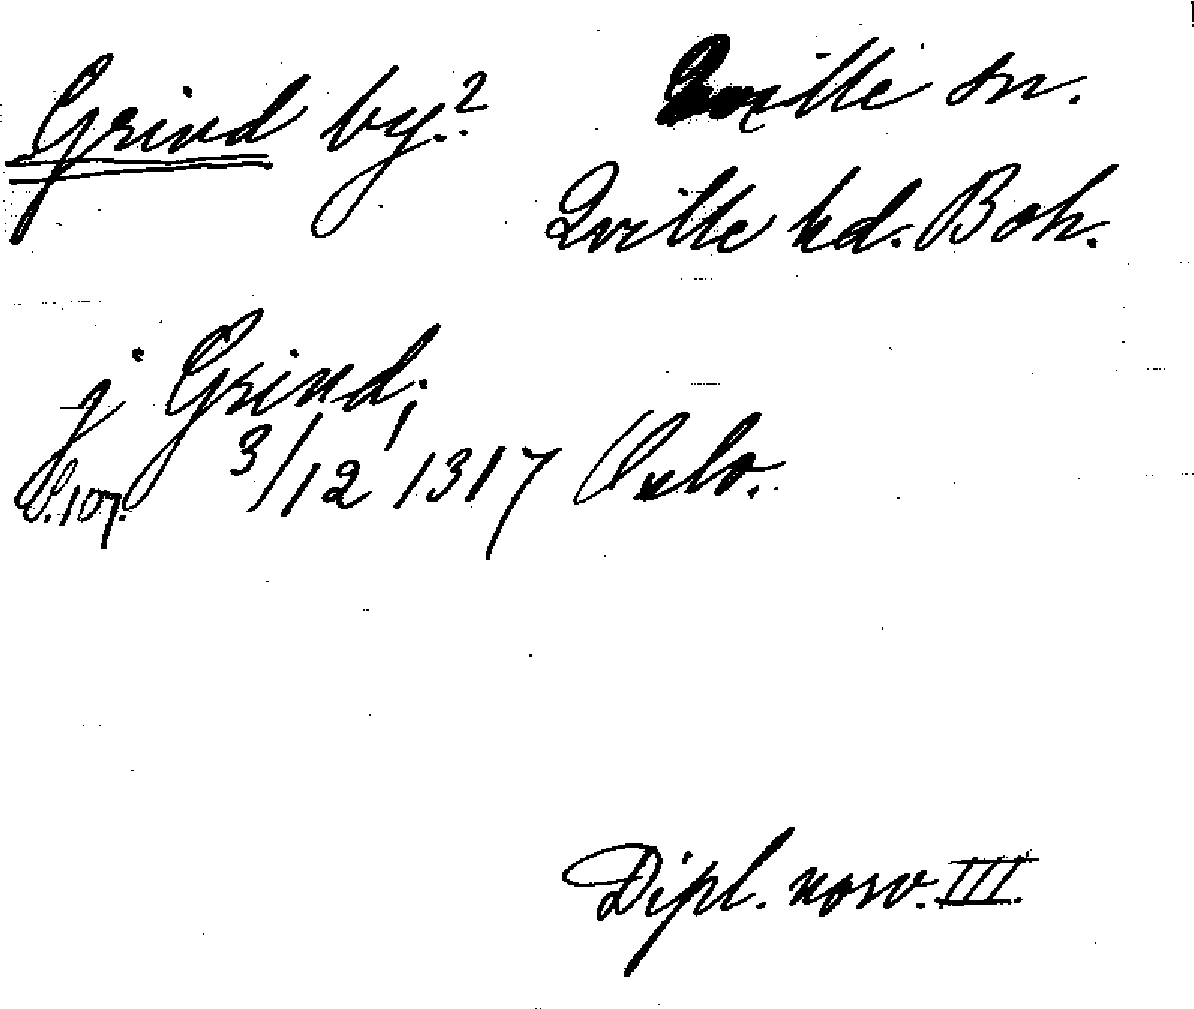 Grind by? Qville sn.
Qville hd. Boh.
j Grind,
S. 107. 3/12 1317 Oslo.
Dipl. norv. III.